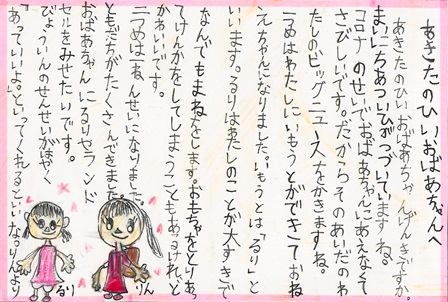 あきたのひいおばあちゃんへ
あきたのひいおばあちゃん、げんきですか。
まい日あついひがつづいていますね。
コロナのせいでおばあちゃんにあえなくて
さびしいです。だからそのあいだのわ
たしのビッグニュースをかきますね。
一つめはわたしにいもうとができておね
えちゃんになりました。いもうとは「るり」と
いいます。るりはわたしのことが大すきで
なんでもまねをします。おもちゃをとりあっ
てけんかをしてしまうこともあるけれど
かわいいです。
二つめは一ねんせいになりました。
ともだちがたくさんできました。
おばあちゃんにるりとランド
セルをみせたいです。
びょういんのせんせいがはやく
「あっていいよ。」といってくれるといいな。りんより
るり
りん